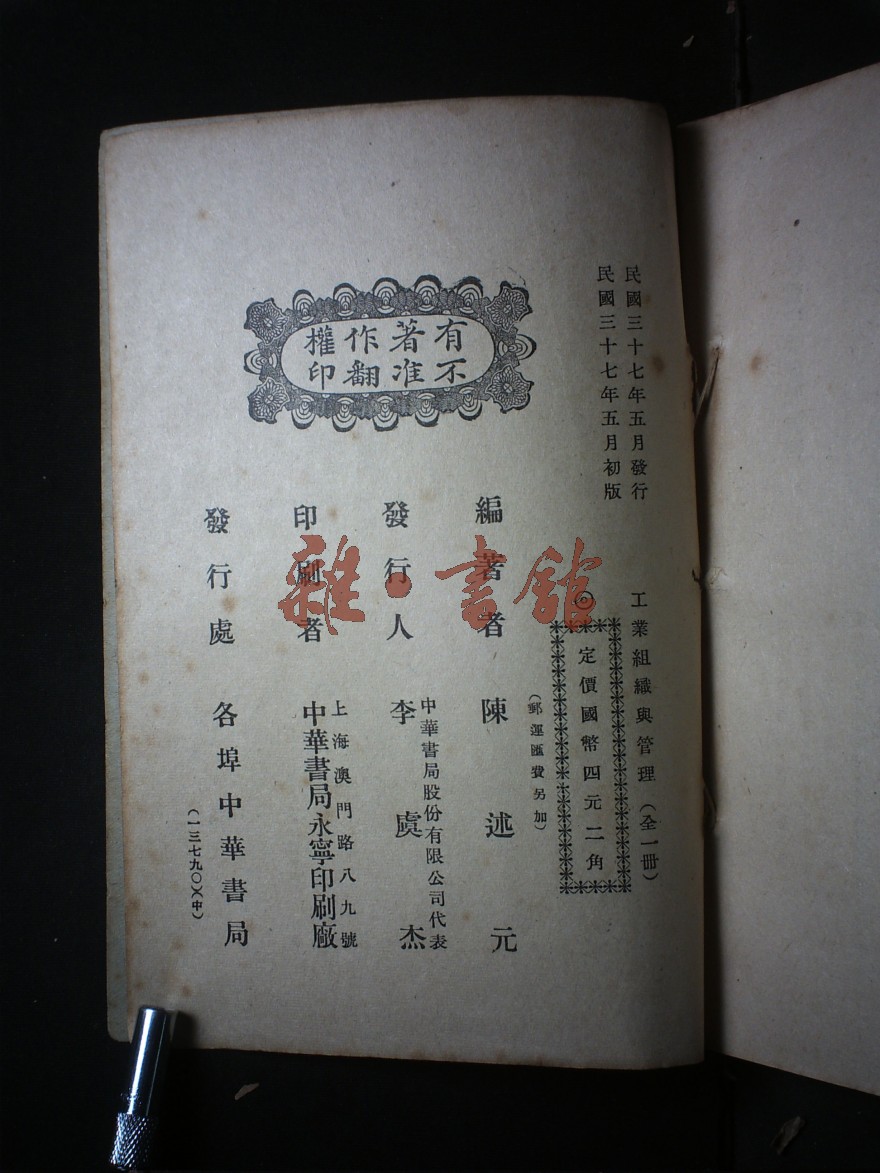 民國三十七年五月發行
民國三十七年五月初版
工業組織與管理（全一冊）
定價國幣四元二角
（郵運匯費另加）
有著作權
不准翻印
編著者 陳述元
發行人 中華書局股份有限公司代表
李虞杰
印刷者 上海澳門路八九號
中華書局永寧印刷廠
發行處 各埠中華書局
（一三七九〇）（中）
雜·書館